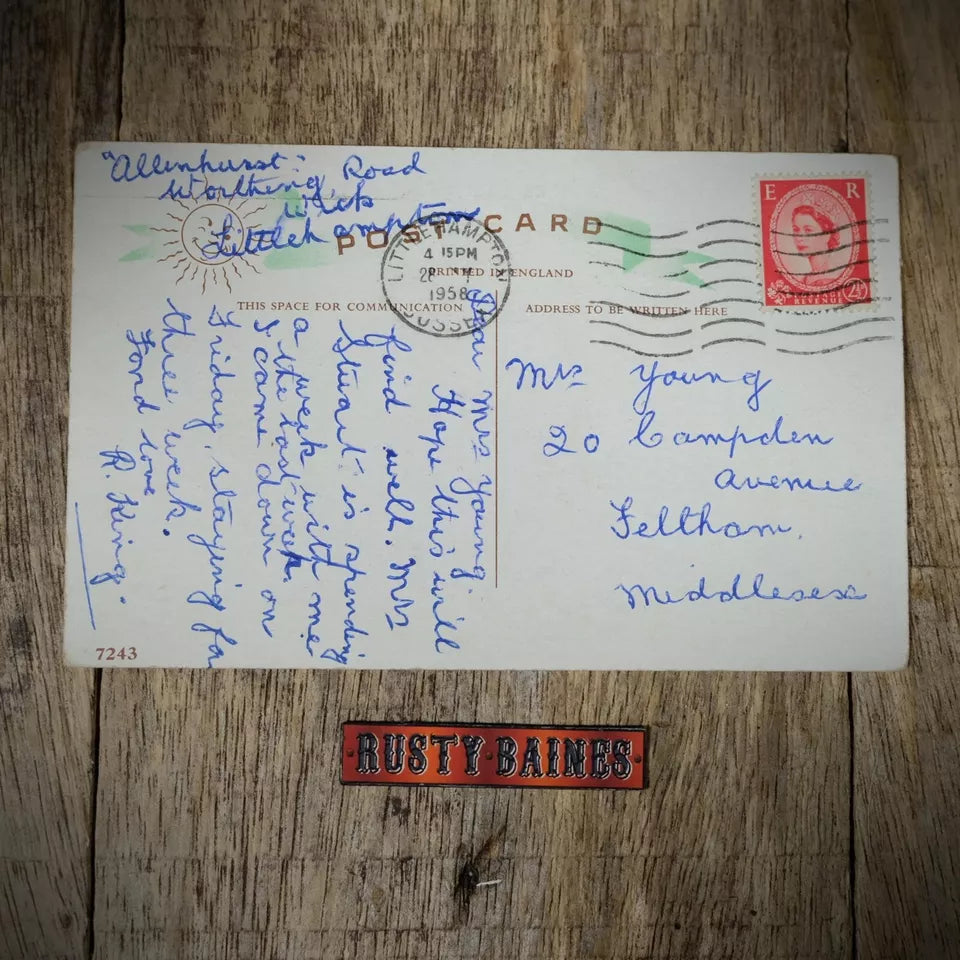 "Allinhurst". Road
Worthing
Wick
Littlehampton
POST CARD
PRINTED IN ENGLAND
LITTLEHAMPTON
4 15 PM
1958
SUSSEX
E R
REVENUE
2½
THIS SPACE FOR COMMUNICATION
ADDRESS TO BE WRITTEN HERE
Dear Mrs Young
Hope this will
find well. Mrs
Stuart is spending
a week with me
a the last week.
I came down on
Friday, staying for
three week.
Fond love
R. King.
Mrs Young
20 Campden
Avenue
Feltham.
Middlesex
7243
RUSTY·BAINES